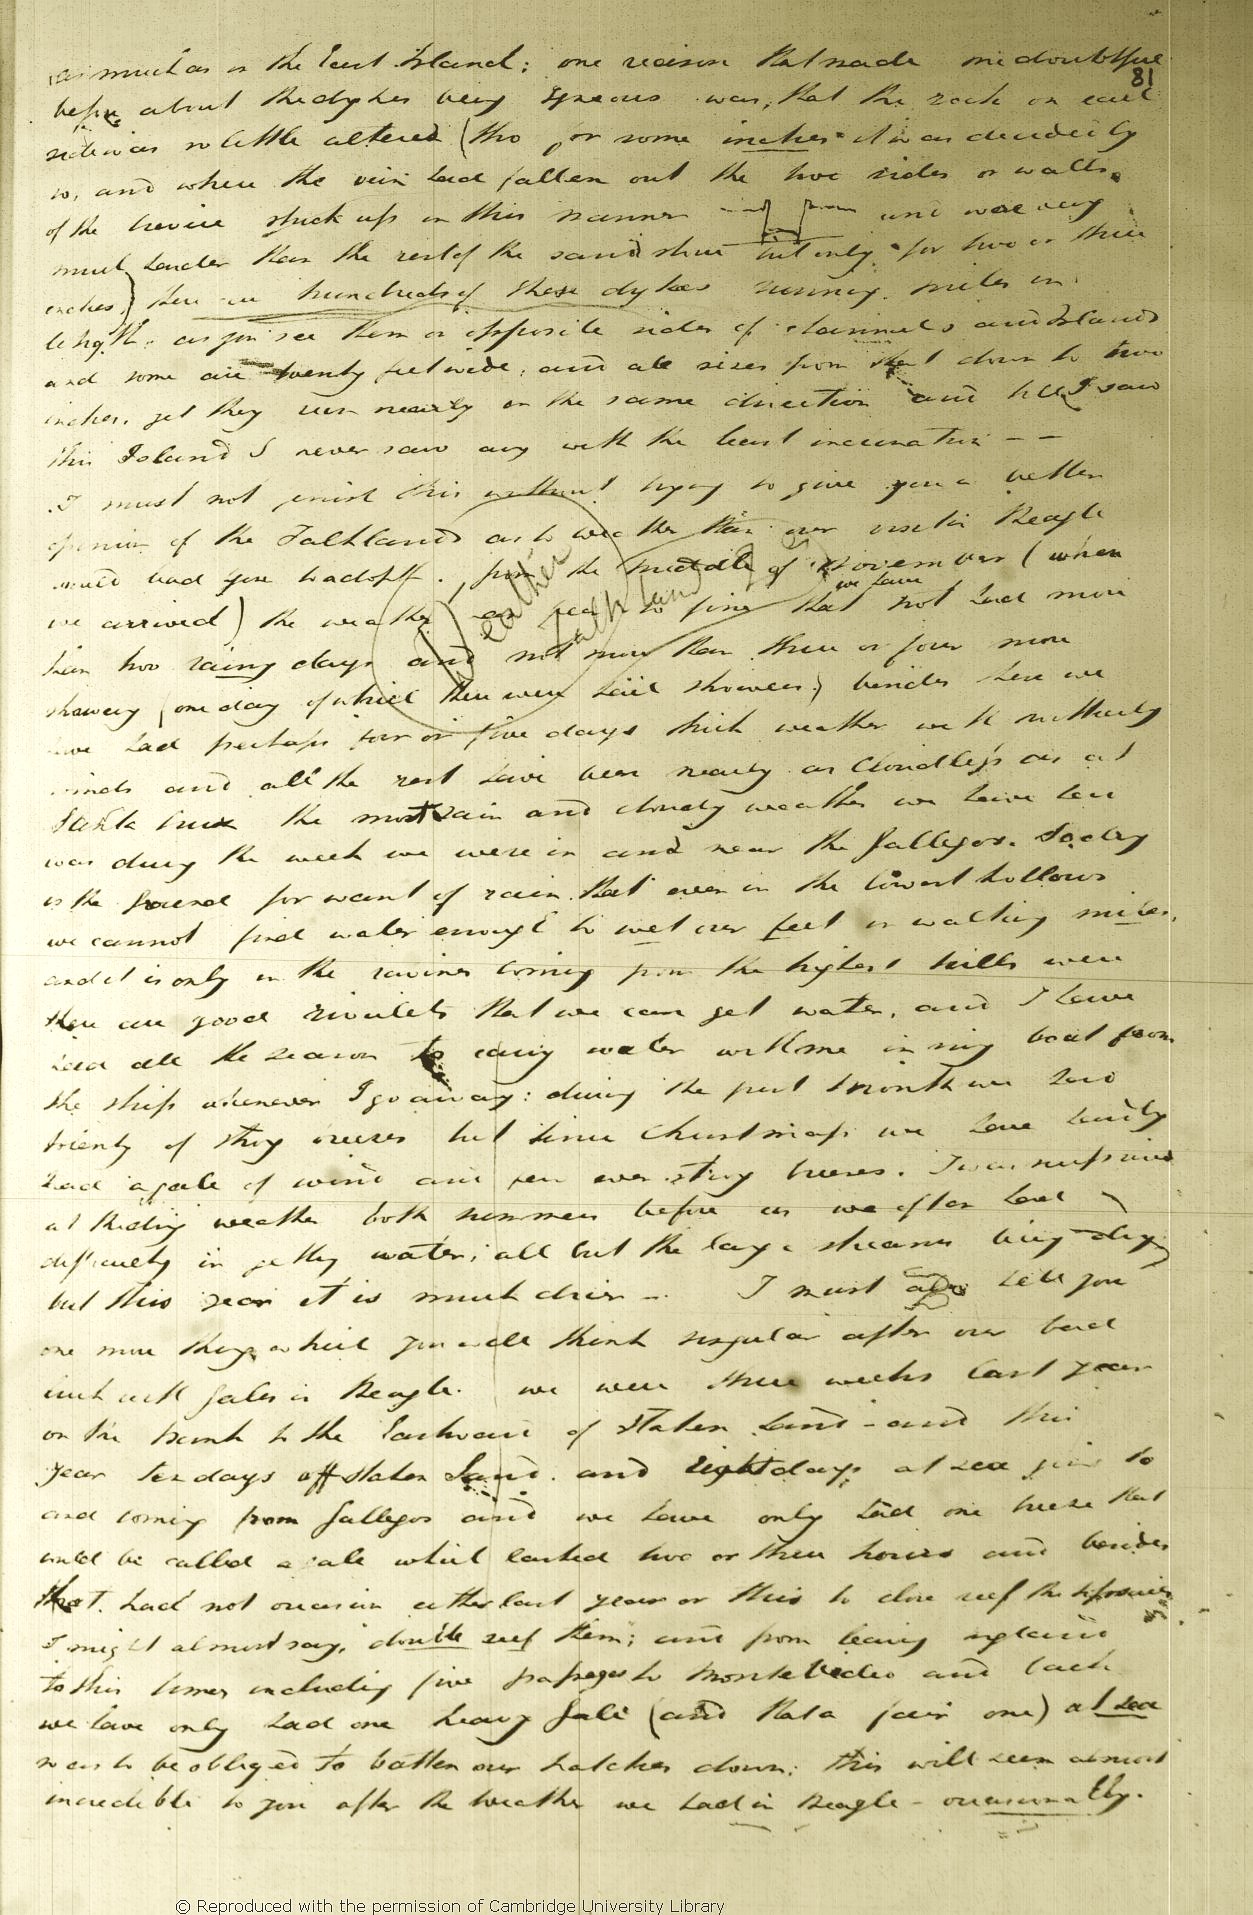 as much as in the East Island; one reason that made me doubtful
81
before about the dykes being Igneous was, that the rock on each
side was so little altered (tho' for some inches it was decidedly
so, and where the vein had fallen out the two sides or walls
of the crevice stuck up in this manner and were very
much harder than the rest of the sand stone but only for two or three
inches) there are hundreds of these dykes running miles in
length, as you see them on opposite sides of channels and Islands
and some are twenty feet wide, and all sizes from that down to two
inches, yet they run nearly in the same direction and till I saw
this Island I never saw any with the least inclination – –
I must not finish this without trying to give you a better
opinion of the Falklands as to weather than our visit in Beagle
would lead you to adopt. from the middle of November (when
we arrived) the weather so fine that we have not had more
than two rainy days and not more than three or four more
showery (one day of which there were hail showers) besides there we
have had perhaps four or five days thick weather with northerly
winds and all the rest have been nearly as Cloudless as at
Santa Cruz the most rain and cloudy weather we have had
was during the week we were in and near the Gallegos. So dry
is the ground for want of rain that even in the lowest hollows
we cannot find water enough to wet our feet in walking miles,
and it is only in the ravines coming from the highest hills where
there are good rivulets that we can get water, and I have
had all the season to carry water with me in my boat from
the ship whenever I go away: during the first month we had
plenty of strong breezes but since Christmas we have hardly
had a gale of wind and few even strong breezes. I was surprised
at the dry weather both summers before as we often had
difficulty in getting water; all but the large streams being dry,
but this year it is much drier – I must also tell you
one more thing which you will think singular after our bad
luck with Gales in Beagle. we were three weeks last year
on the bank to the Eastward of Staten Land – and this
year ten days off Staten Land. and eight days at sea going to
and coming from Gallegos and we have only had one breeze that
could be called a gale which lasted two or three hours and besides
that had not occasion either last year or this to close reef the topsails
I might almost say, double reef them; and from leaving England
to this time including five passages to Monte Video and back
we have only had one heavy Gale (and that a fair one) at sea
so as to be obliged to batten our hatches down: this will seem almost
incredible to you after the weather we had in Beagle – occasionally.
Weather
Falkland